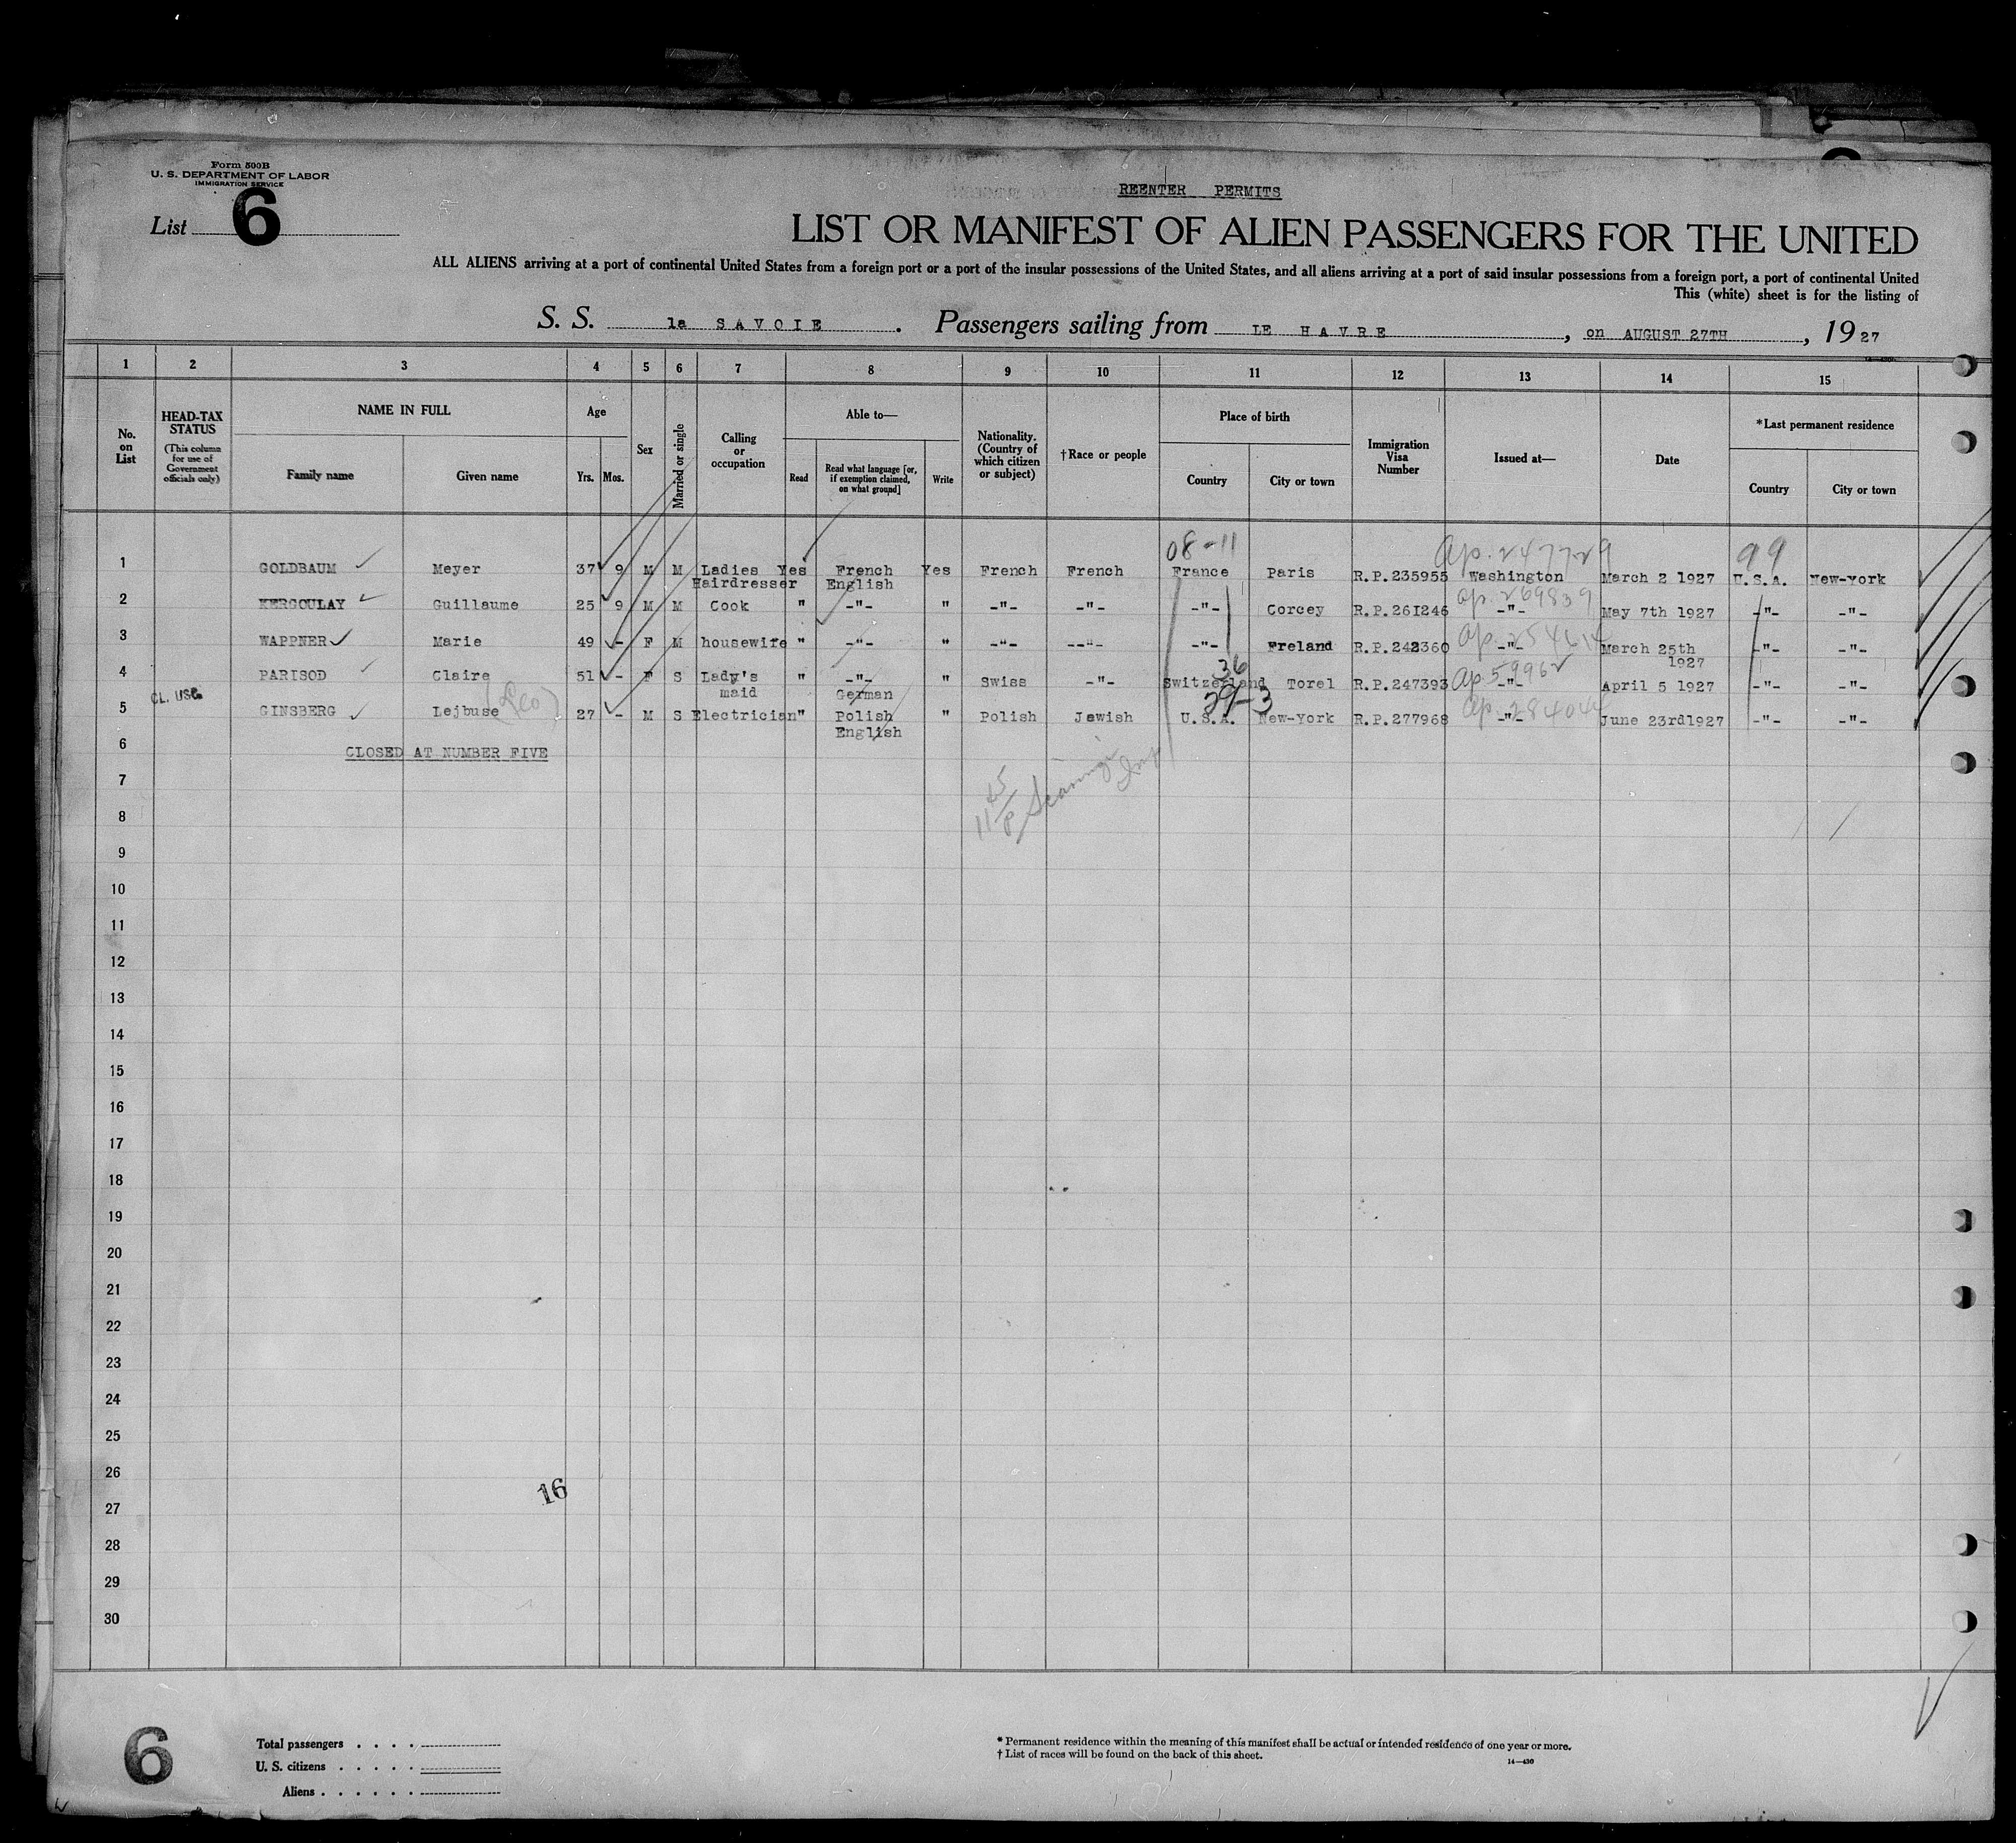 Form 500B
U. S. DEPARTMENT OF LABOR
IMMIGRATION SERVICE
List 6
REENTER PERMITS
LIST OR MANIFEST OF ALIEN PASSENGERS FOR THE UNITED
ALL ALIENS arriving at a port of continental United States from a foreign port or a port of the insular possessions of the United States, and all aliens arriving at a port of said insular possessions from a foreign port, a port of continental United
This (white) sheet is for the listing of
S. S. la SAVOIE. Passengers sailing from LE HAVRE, on AUGUST 27TH, 1927
1 2 3 4 5 6 7 8 9 10 11 12 13 14 15
No. on List
HEAD-TAX STATUS
(This column for use of Government officials only)
NAME IN FULL
Family name Given name
Age
Yrs. Mos.
Sex
Married or single
Calling or occupation
Able to—
Read
Read what language [or, if exemption claimed, on what ground]
Write
Nationality. (Country of which citizen or subject)
†Race or people
Place of birth
Country City or town
Immigration Visa Number
Issued at—
Date
*Last permanent residence
Country City or town
08-11 ap. 247729 99
1 GOLDBAUM Meyer 37 9 M M Ladies Yes French Yes French French France Paris R.P.235955 Washington March 2 1927 U.S.A. New-York
Hairdresser English
ap. 269839
2 KERGOULAY Guillaume 25 9 M M Cook " -"- " -"- -"- -"- Corcey R.P.261246 -"- May 7th 1927 -"- -"-
3 WAPPNER Marie 49 - F M housewife " -"- " -"- --"- -"- Freland R.P.242360 -"- March 25th -"- -"-
1927
36 ap.59962
4 PARISOD Claire 51 - F S Lady's " -"- " Swiss -"- Switzerland Torel R.P.247393 -"- April 5 1927 -"- -"-
maid German
CL. USC (Leo) 29-3 ap. 284044
5 GINSBERG Lejbuse 27 - M S Electrician " Polish " Polish Jewish U.S.A. New-York R.P.277968 -"- June 23rd1927 -"- -"-
English
6 CLOSED AT NUMBER FIVE
7
8
9
10
11
12
13
14
15
16
17
18
19
20
21
22
23
24
25
26
16
27
28
29
30
6
Total passengers
U. S. citizens
Aliens
* Permanent residence within the meaning of this manifest shall be actual or intended residence of one year or more.
† List of races will be found on the back of this sheet.
14—430